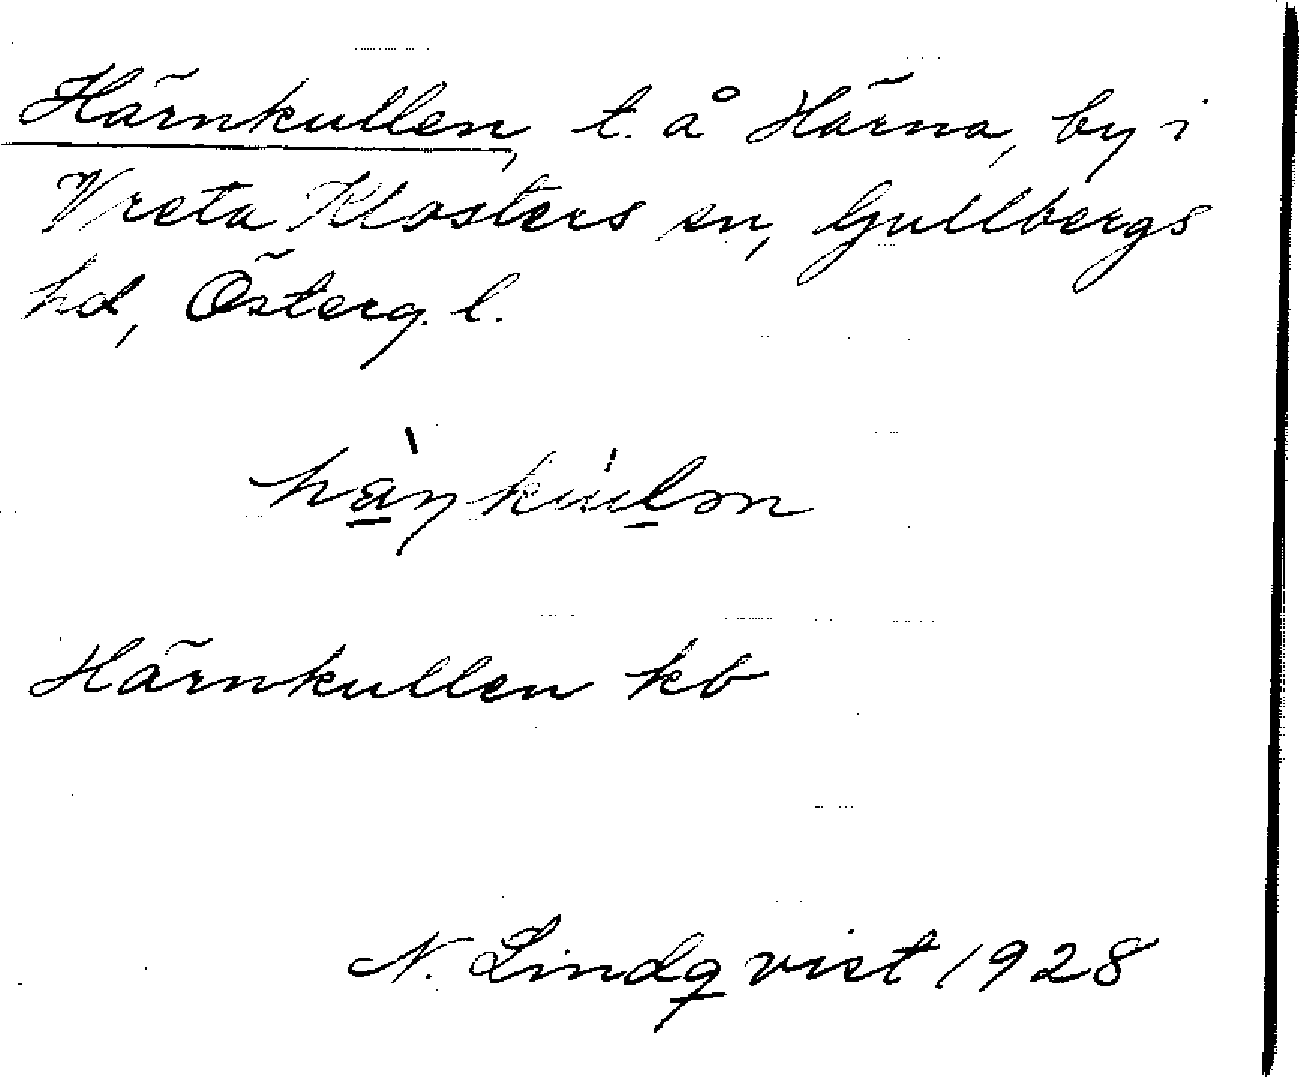 Härnkullen, t. å Härna, by i
Vreta Klosters sn, Gullbergs
hd, Österg. l.
Härnkullen kb
N. Lindqvist 1928